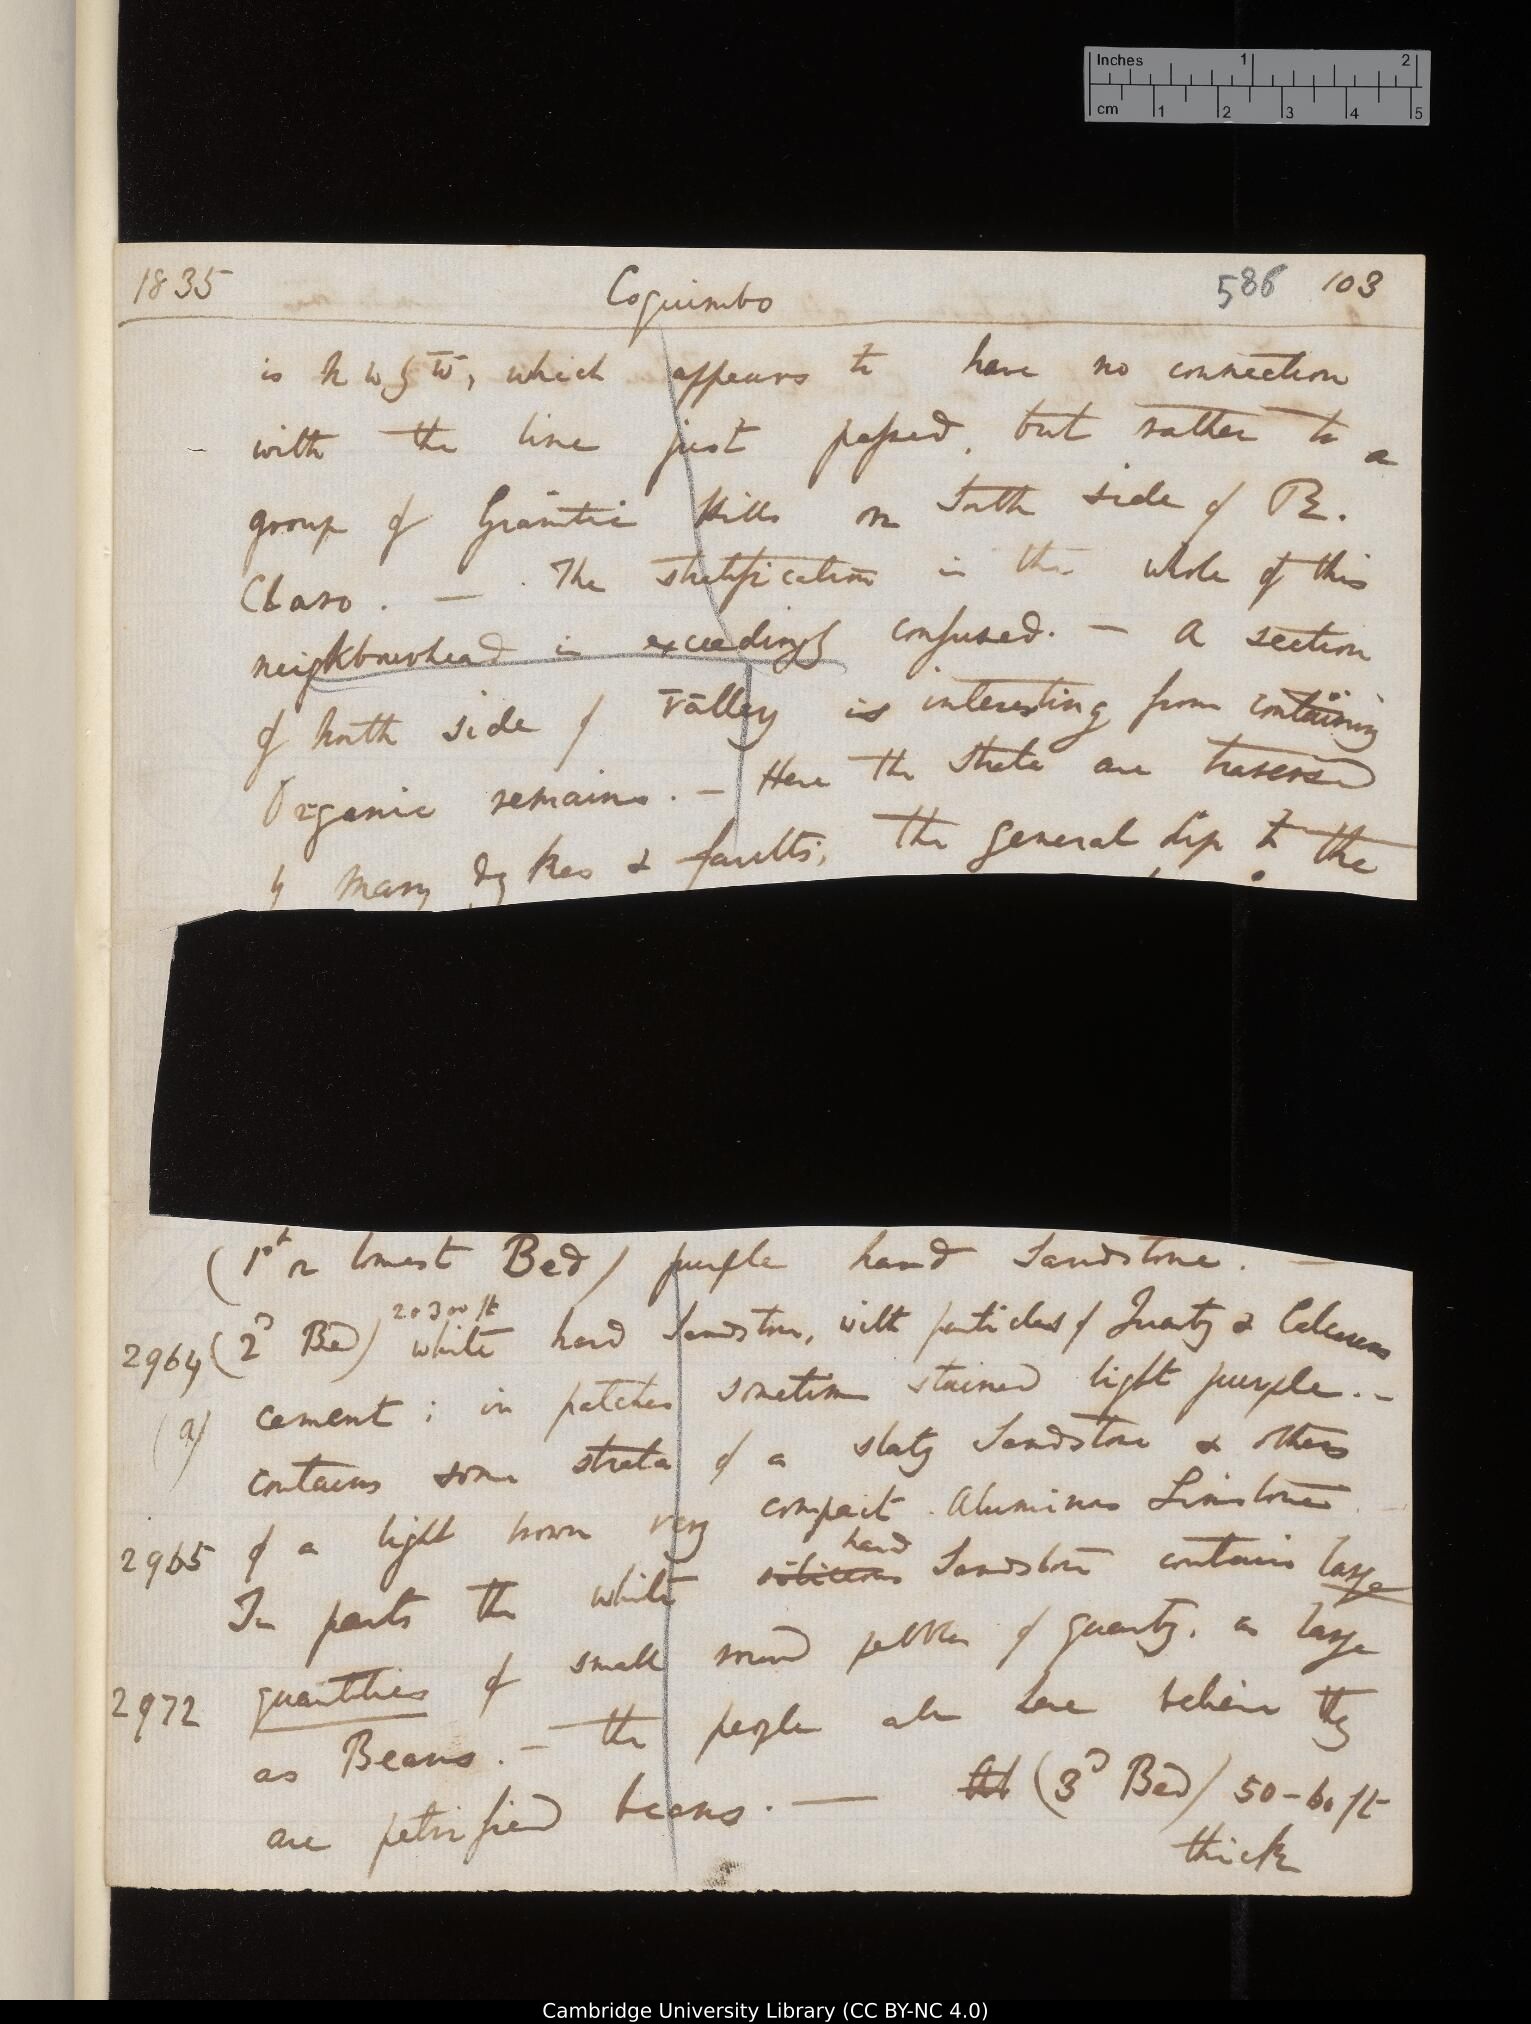 Inches 1 2
cm 1 2 3 4 5
1835 Coquimbo 586 103
is N W by W, which appears to have no connection
with the line just passed, but rather to a
group of Granitic Hills on South side of R.
Claro. — The stratification in the whole of this
neighbourhead is exceedingly confused. — A section
of North side of valley is interesting from containing
Organic remains. — Here the strata are traversed
by many dykes & faults, the general dip to the
(1st or lowest Bed) purple hard Sandstone. —
20 300 ft
2964 (2d Bed) white hard Sandstone, with particles of Quartz & Calcareous
(a) cement; in patches sometimes stained light purple. —
contains some strata of a slaty Sandstone & others
2965 of a light brown very compact Aluminous Limestone
hard
In parts the white siliceous Sandstone contains large
2972 quantities of small round pebbles of quartz, as large
as Beans. — the people here believe they
are petrified beans. — (3d Bed) 50-60 ft
thick
Cambridge University Library (CC BY-NC 4.0)